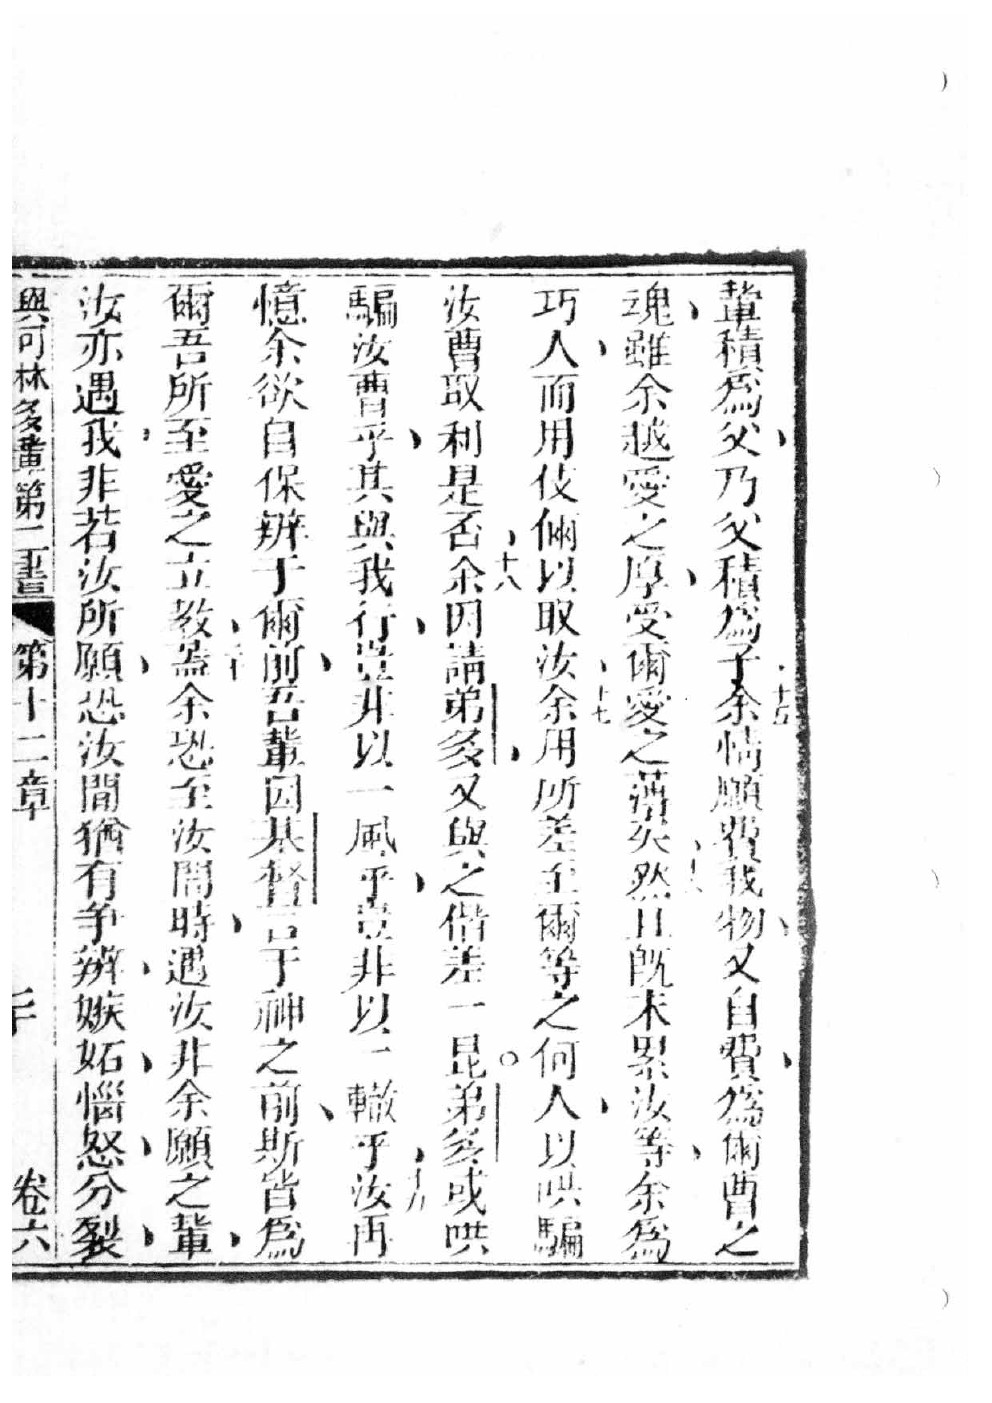 輩積爲父乃父積爲子十五余情願費我物又自費爲爾曹之
魂雖余越愛之厚受爾愛之薄矣十六然且旣未累汝等余爲
巧人而用伎倆以取汝十七余用所差至爾等之何人以哄騙
汝曹取利是否十八余因請弟多又與之偕差一昆。弟多或哄
騙汝曹乎其與我行豈非以一風乎豈非以一轍乎十九汝再
憶余欲自保辨于爾前吾輩因基督言于神之前斯皆爲
爾吾所至愛之立教二十蓋余恐至汝間時遇汝非余願之輩
汝亦遇我非若汝所願恐汝間猶有爭辨嫉妬惱怒分裂
與可林多輩第二書 第十二章 卷六